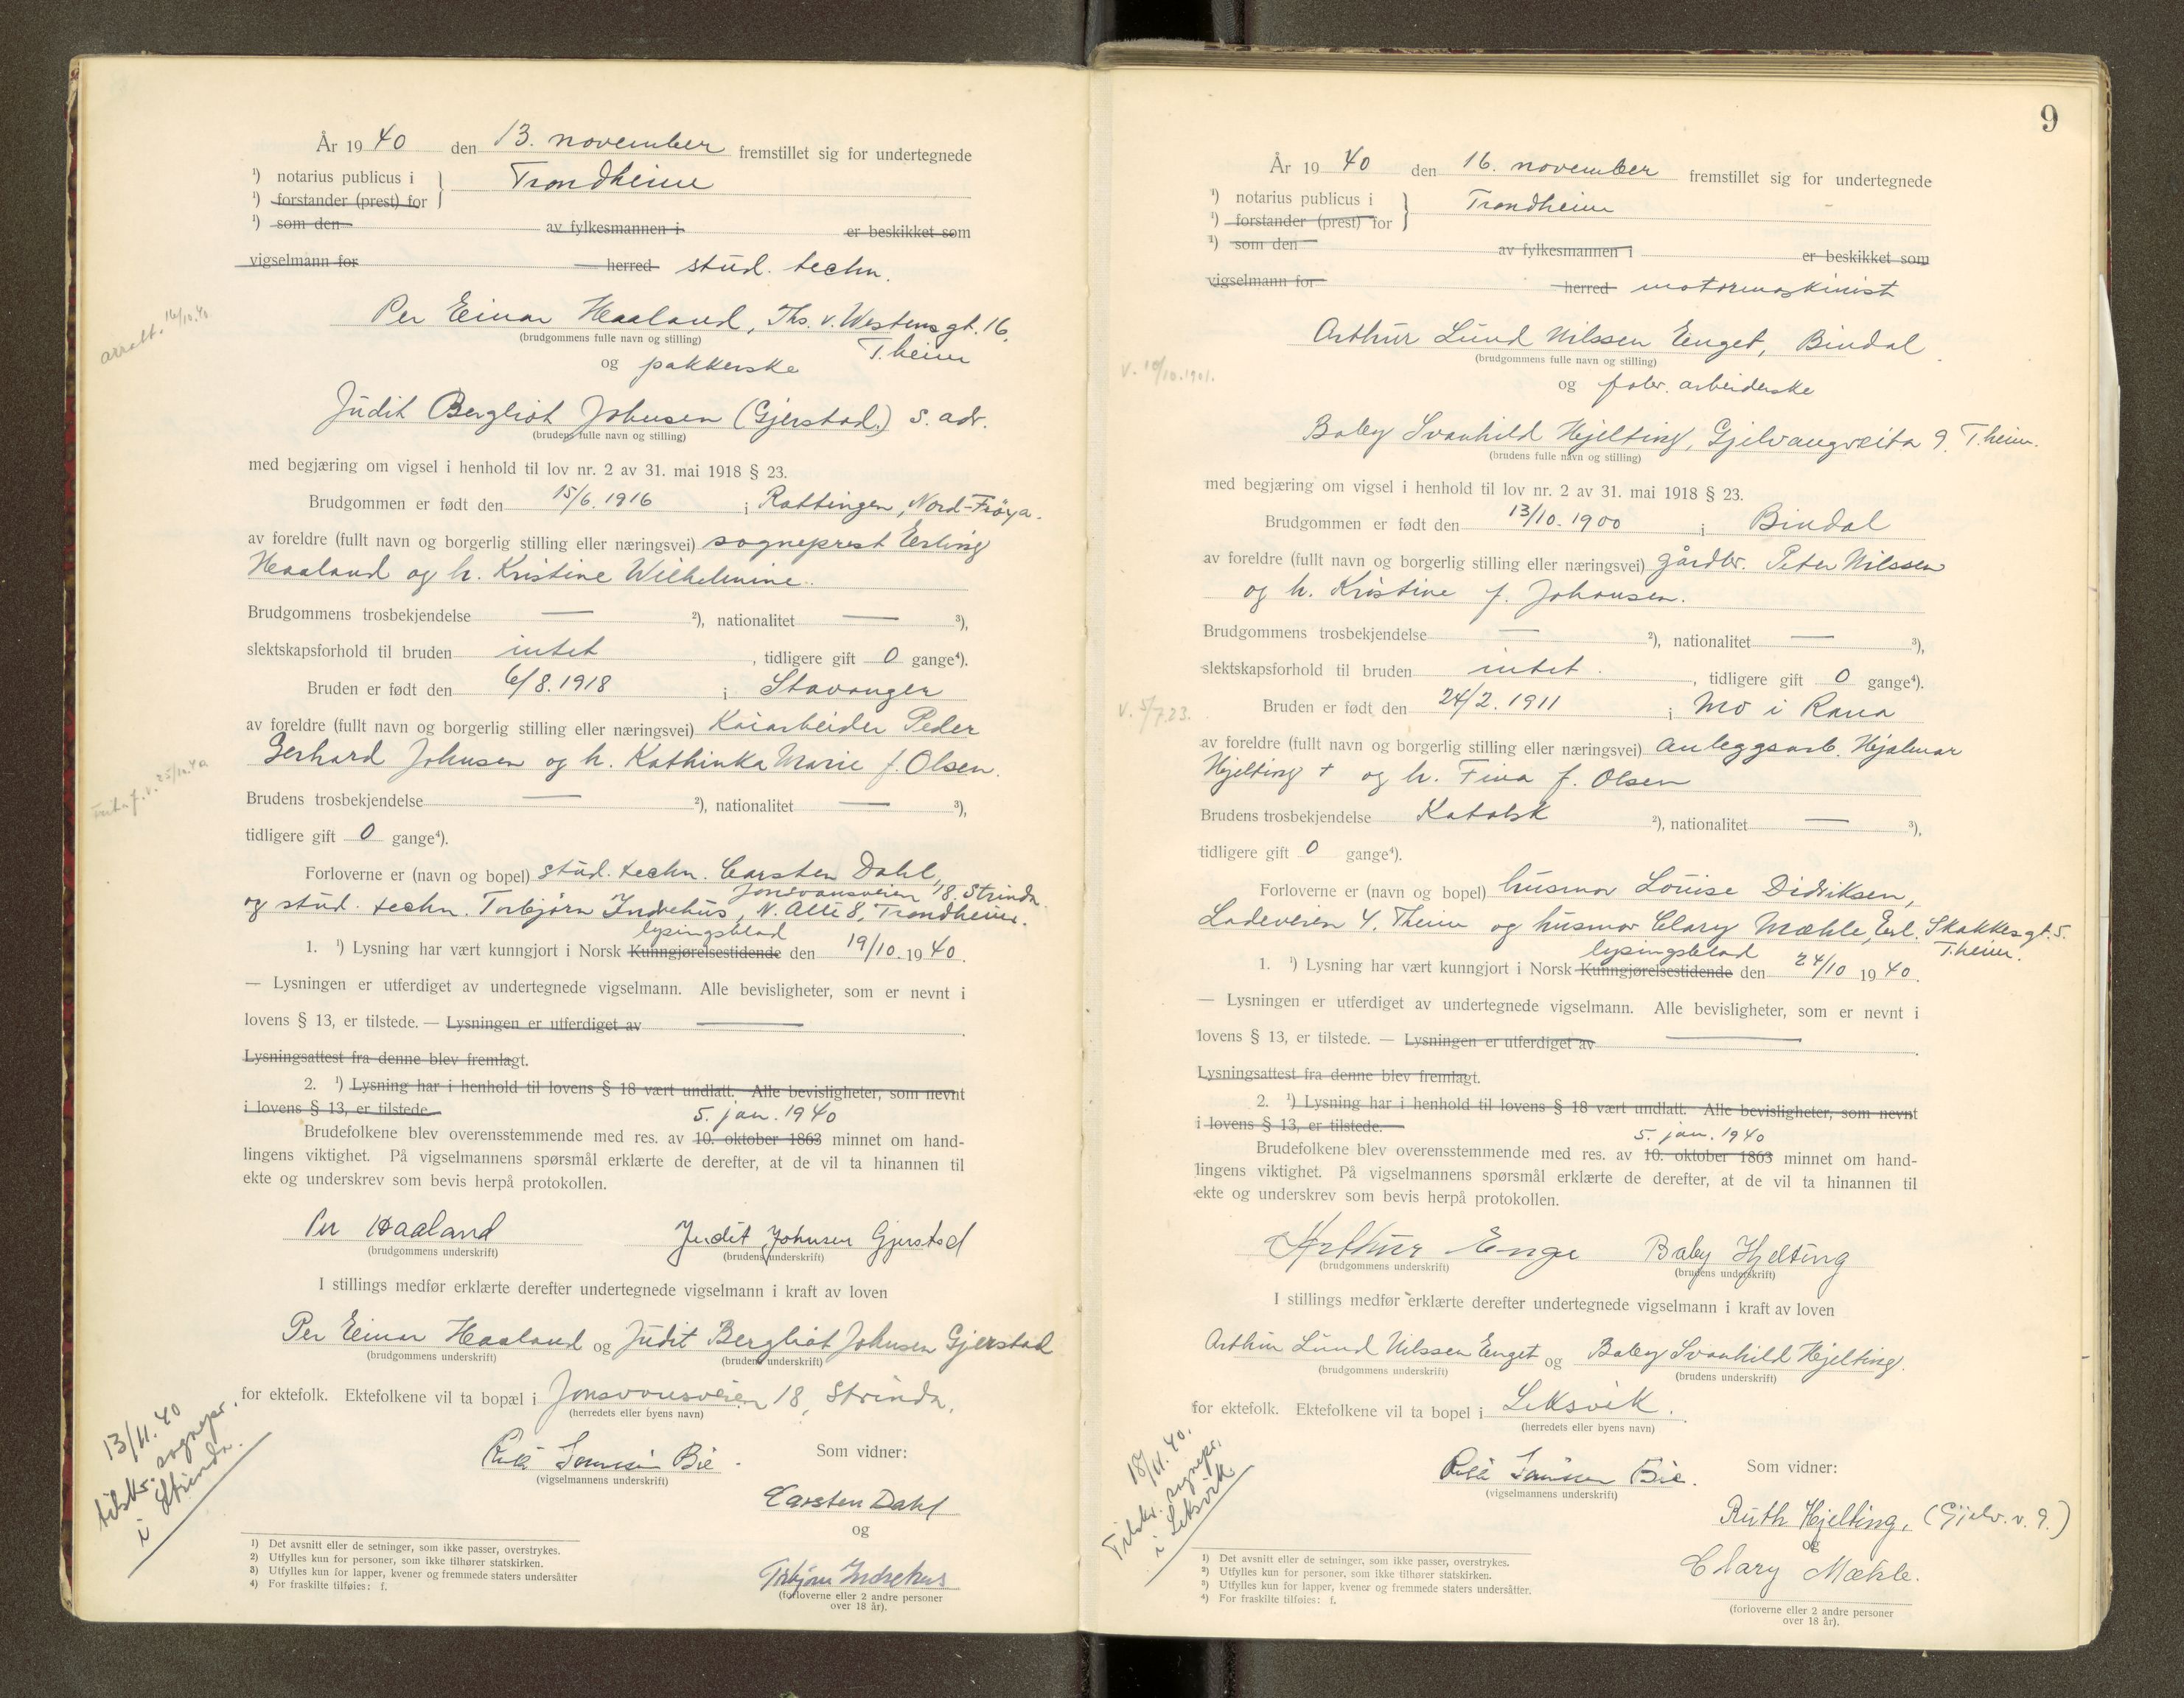 År 1940 den 13. november fremstillet sig for undertegnede
¹) notarius publicus i } Trondheim
¹) forstander (prest) for
¹) som den av fylkesmannen i er beskikket som
vigselmann for herred stud. techn.
Per Einar Haaland, Ths. v. Westens gt. 16,
(brudgommens fulle navn og stilling)
T.heim
og pakkerske
Judit Bergliot Johnsen (Gjerstad) s. adr.
(brudens fulle navn og stilling)
med begjæring om vigsel i henhold til lov nr. 2 av 31. mai 1918 § 23.
Brudgommen er født den 15/6. 1916 i Rottingen, Nord-Frøya.
av foreldre (fullt navn og borgerlig stilling eller næringsvei) sogneprest Erling
Haaland og h. Kristine Wilhelmine.
Brudgommens trosbekjendelse — ²), nationalitet — ³),
slektskapsforhold til bruden intet , tidligere gift 0 gange⁴).
Bruden er født den 6/8. 1918 i Stavanger
av foreldre (fullt navn og borgerlig stilling eller næringsvei) Kaiarbeider Peder
Gerhard Johnsen og h. Kathinka Marie f. Olsen.
Brudens trosbekjendelse — ²), nationalitet — ³),
tidligere gift 0 gange⁴).
Forloverne er (navn og bopel) stud. techn. Carsten Dahl,
Jonsvansveien 18. Strinda
og stud. techn. Torbjørn Indrehus, N. Allé 8, Trondheim.
lysingsblad
1. ¹) Lysning har vært kunngjort i Norsk Kunngjørelsestidende den 19/10. 1940.
— Lysningen er utferdiget av undertegnede vigselmann. Alle bevisligheter, som er nevnt i
lovens § 13, er tilstede. — Lysningen er utferdiget av —
Lysningsattest fra denne blev fremlagt.
2. ¹) Lysning har i henhold til lovens § 18 vært undlatt. Alle bevisligheter, som nevnt
i lovens § 13, er tilstede
5. jan. 1940
Brudefolkene blev overensstemmende med res. av 10. oktober 1863 minnet om hand-
lingens viktighet. På vigselmannens spørsmål erklærte de derefter, at de vil ta hinannen til
ekte og underskrev som bevis herpå protokollen.
Per Haaland Judit Johnsen Gjerstad
(brudgommens underskrift) (brudens underskrift)
I stillings medfør erklærte derefter undertegnede vigselmann i kraft av loven
Per Einar Haaland og Judit Bergliot Johnsen Gjerstad
(brudgommens underskrift) (brudens underskrift)
for ektefolk. Ektefolkene vil ta bopæl i Jonsvansveien 18, Strinda.
(herredets eller byens navn)
Bie. Som vidner:
(vigselmannens underskrift)
Carsten Dahl
og
Torbjørn Indrehus
(forloverne eller 2 andre personer
over 18 år).
16/10.40
25/10.40
13/11.40
tilskr. sognepr.
i Strinda.
¹) Det avsnitt eller de setninger, som ikke passer, overstrykes.
²) Utfylles kun for personer, som ikke tilhører statskirken.
³) Utfylles kun for lapper, kvener og fremmede staters undersåtter
⁴) For fraskilte tilføies: f.
9
År 1940 den 16. november fremstillet sig for undertegnede
¹) notarius publicus i } Trondheim
¹) forstander (prest) for
¹) som den av fylkesmannen i er beskikket som
vigselmann for herred motormaskinist
Arthur Lund Nilssen Enget, Bindal
(brudgommens fulle navn og stilling)
og fabr. arbeiderske
Baby Svanhild Hjelting, Gjelvangveita 9. T.heim.
(brudens fulle navn og stilling)
med begjæring om vigsel i henhold til lov nr. 2 av 31. mai 1918 § 23.
Brudgommen er født den 13/10. 1900 i Bindal
av foreldre (fullt navn og borgerlig stilling eller næringsvei) gårdbr. Peter Nilssen
og h. Kristine f. Johansen.
Brudgommens trosbekjendelse — ²), nationalitet — ³),
slektskapsforhold til bruden intet. , tidligere gift 0 gange⁴).
Bruden er født den 24/2. 1911 i Mo i Rana
av foreldre (fullt navn og borgerlig stilling eller næringsvei) anleggsarb. Hjalmar
Hjelting † og h. Fina f. Olsen
Brudens trosbekjendelse Katolsk ²), nationalitet — ³),
tidligere gift 0 gange⁴).
Forloverne er (navn og bopel) husmor Louise Didriksen,
Ladeveien 4. Theim og husmor Clary Mæhle, Erl. Skakkes gt. 5.
T.heim.
lysingsblad
1. ¹) Lysning har vært kunngjort i Norsk Kunngjørelsestidende den 24/10 1940.
— Lysningen er utferdiget av undertegnede vigselmann. Alle bevisligheter, som er nevnt i
lovens § 13, er tilstede. — Lysningen er utferdiget av —
Lysningsattest fra denne blev fremlagt.
2. ¹) Lysning har i henhold til lovens § 18 vært undlatt. Alle bevisligheter, som nevnt
i lovens § 13, er tilstede.
5. jan. 1940
Brudefolkene blev overensstemmende med res. av 10. oktober 1863 minnet om hand-
lingens viktighet. På vigselmannens spørsmål erklærte de derefter, at de vil ta hinannen til
ekte og underskrev som bevis herpå protokollen.
Arthur Enge Baby Hjelting
(brudgommens underskrift) (brudens underskrift)
I stillings medfør erklærte derefter undertegnede vigselmann i kraft av loven
Arthur Lund Nilssen Enget og Baby Svanhild Hjelting.
(brudgommens underskrift) (brudens underskrift)
for ektefolk. Ektefolkene vil ta bopel i Leksvik.
(herredets eller byens navn)
Bie. Som vidner:
(vigselmannens underskrift)
Ruth Hjelting, (Gjelv. v. 9.)
og
Clary Mæhle.
(forloverne eller 2 andre personer
over 18 år).
v. 10/10.1901.
v. 5/7.23.
18/11.40.
Tilskr. sognepr.
i Leksvik
¹) Det avsnitt eller de setninger, som ikke passer, overstrykes.
²) Utfylles kun for personer, som ikke tilhører statskirken.
³) Utfylles kun for lapper, kvener og fremmede staters undersåtter.
⁴) For fraskilte tilføies: f.